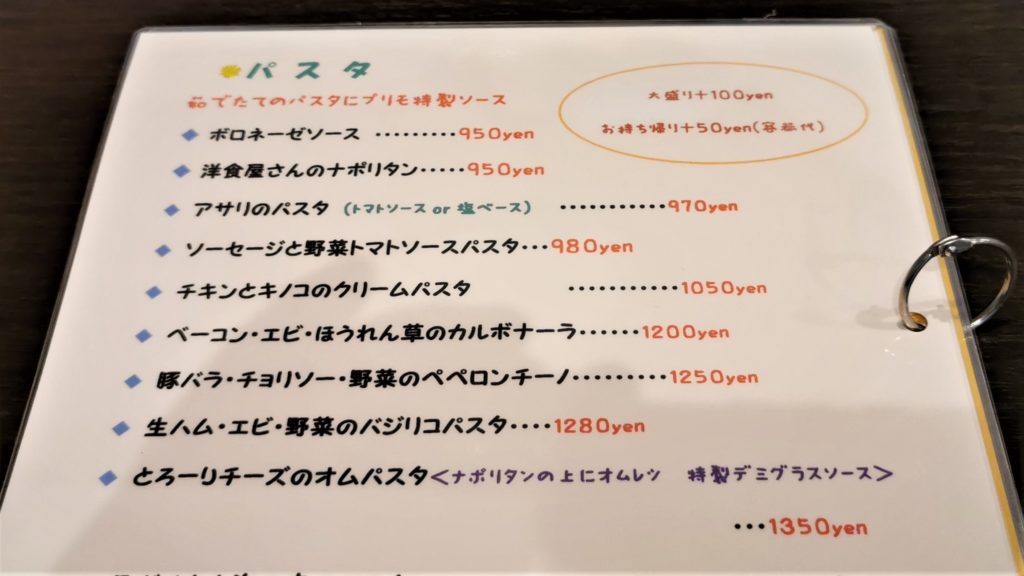 パスタ
茹でたてのパスタにプリモ特製ソース
大盛り+100yen
お持ち帰り+50yen(容器代)
ボロネーゼソース ・・・・・・・・・950yen
洋食屋さんのナポリタン・・・・・950yen
アサリのパスタ (トマトソース or 塩ベース) ・・・・・・・・・・・970yen
ソーセージと野菜トマトソースパスタ・・・980yen
チキンとキノコのクリームパスタ ・・・・・・・・・・・1050yen
ベーコン・エビ・ほうれん草のカルボナーラ・・・・・・1200yen
豚バラ・チョリソー・野菜のペペロンチーノ・・・・・・・・・1250yen
生ハム・エビ・野菜のバジリコパスタ・・・・1280yen
とろーりチーズのオムパスタ<ナポリタンの上にオムレツ 特製デミグラスソース>
・・・1350yen